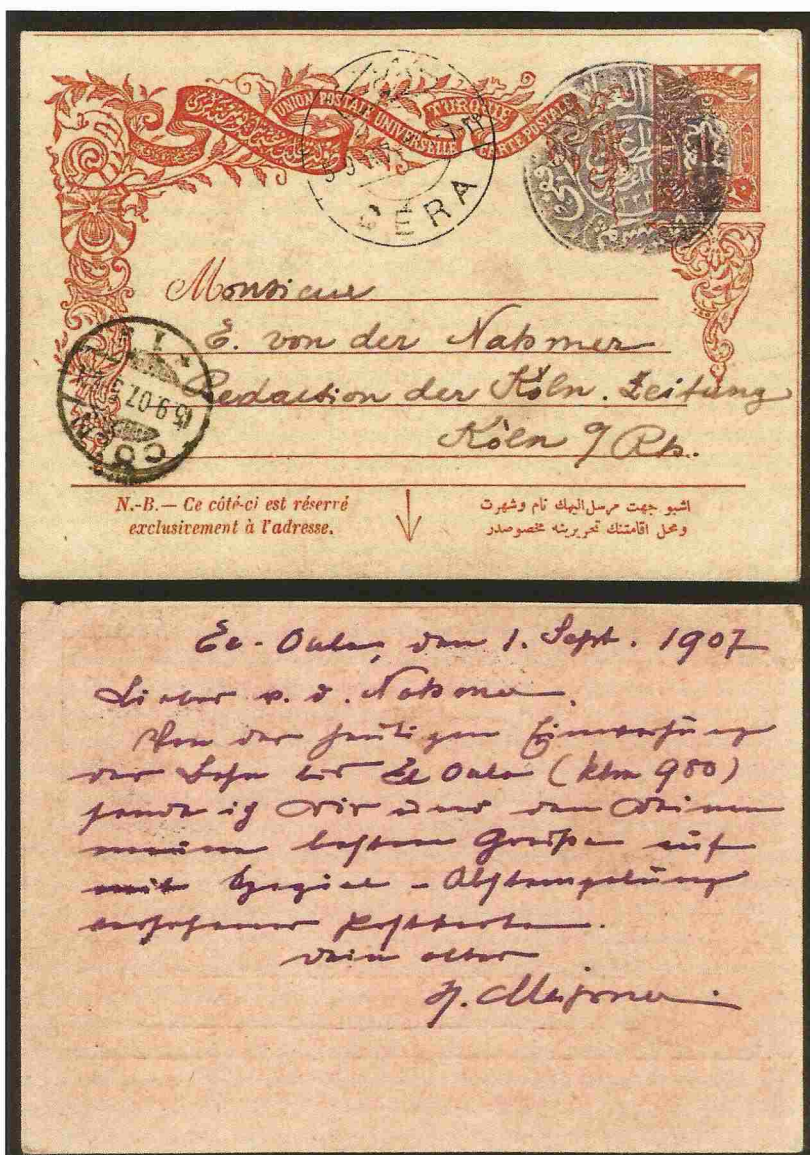 UNION POSTALE UNIVERSELLE
TURQUIE
CARTE POSTALE
PERA
Monsieur
E. von der Nahmer
Redaction der Köln. Zeitung
Köln a/Rh.
CÖLN
9.07
N.-B. — Ce côté-ci est réservé
exclusivement à l'adresse.
اشبو جهت مرسل اليهك نام وشهرت
ومحل اقامتنك تحريرينه مخصوصدر
El-Oula, den 1. Sept. 1907
Lieber v. d. Nahmer.
Von der heutigen Einweihung
der Bahn bis El Oula (klm 980)
sende ich Dir und den Deinen
meine besten Grüße auf
mit Spezial-Abstempelung
versehener Postkarte.
Dein alter
H. Meissner.